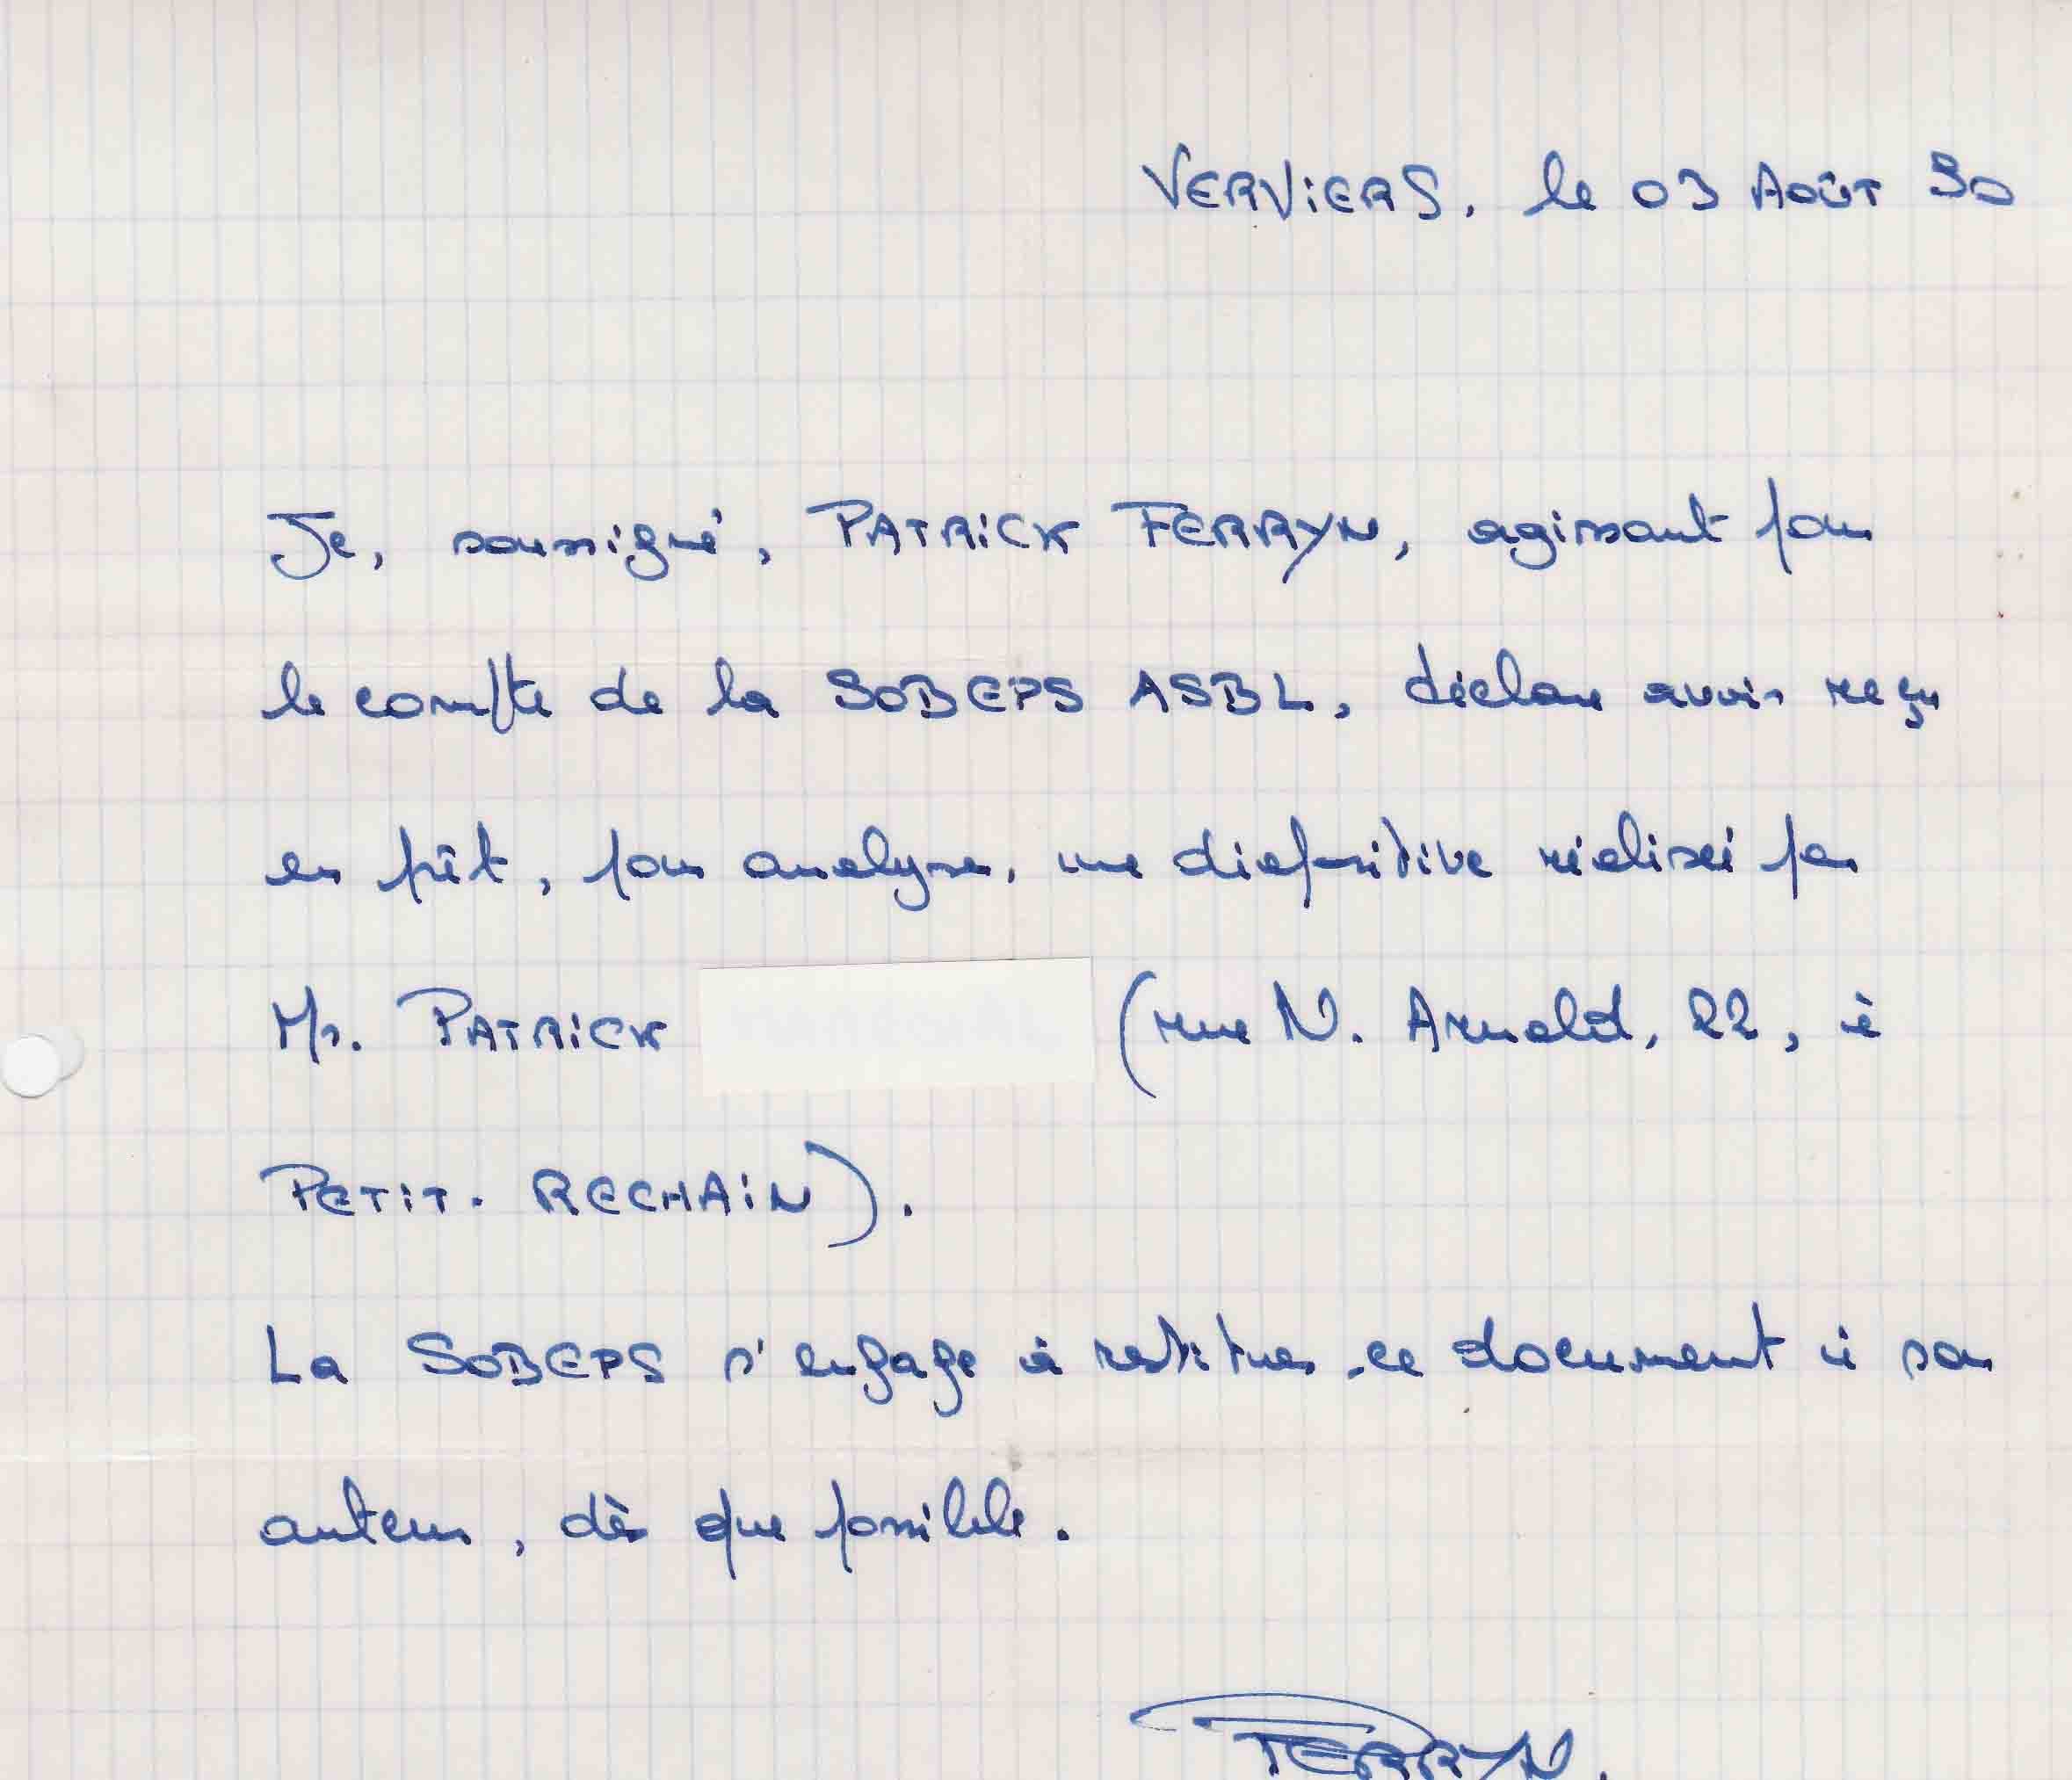 VERVIERS, le 03 AOÛT 90
Je, soussigné, PATRICK FERRYN, agissant pour
le compte de la SOBEPS ASBL, déclare avoir reçu
en prêt, pour analyse, une diapositive réalisée par
Mr. PATRICK (rue N. Arnold, 22, à
PETIT-RECHAIN).
La SOBEPS s'engage à restituer ce document à son
auteur, dès que possible.
FERRYN.